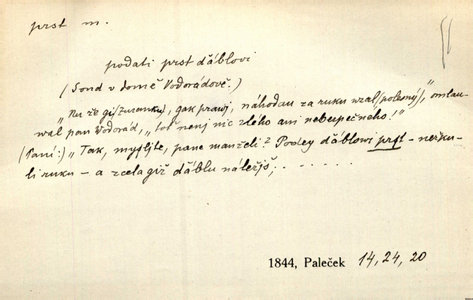 prst m.
podati prst ďáblovi
(Soud v domě Vodorádově.)
"Nu že gi (Zuzanku), gak prawj, náhodau za ruku wzal (polesný)," omlau-
wal pan Vodorád, "toť nenj nic zlého ani nebezpečného!"
(Panj:) "Tak, mysljte, pane manželi? Podey ďáblowi prst – neřku-
li ruku – a zcela giž ďáblu náležjš; . . . . . .
1844, Paleček 14, 24, 20